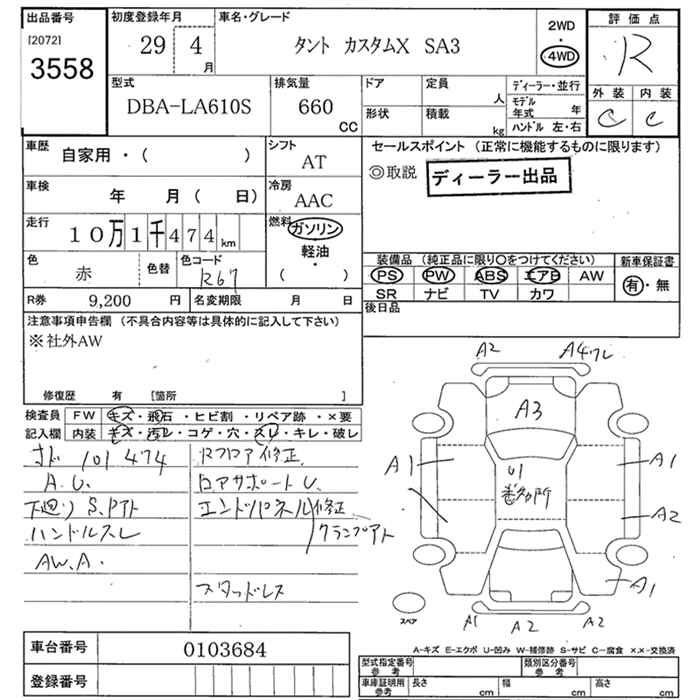 出品番号 初度登録年月 車名・グレード 2WD 評価点
[2072] 29 年 4 月 タント カスタムX SA3 ・ R
3558 4WD
型式 排気量 ドア 定員 人 ディーラー・並行 外装 内装
DBA-LA610S 660 CC 形状 積載 kg モデル年式 年 C C
ハンドル 左・右
車歴 自家用・( ) シフト AT セールスポイント (正常に機能するものに限ります)
◎取説 ディーラー出品
車検 年 月 ( 日) 冷房 AAC
走行 10万1千474km 燃料 ガソリン・軽油・( )
色 赤 色替 色コード R67
装備品 (純正品に限り○をつけてください) 新車保証書
PS PW ABS エアB AW 有・無
SR ナビ TV カワ
R券 9,200 円 名変期限 月 日 後日品
注意事項申告欄 (不具合内容等は具体的に記入して下さい)
※社外AW
修復歴 有 [箇所 ]
検査員 FW キズ・飛石・ヒビ割・リペア跡・×要
記入欄 内装 キズ・汚レ・コゲ・穴・スレ・キレ・破レ
101474 Rフロア修正
A.U. ロアサポートU
下廻りS.Pアト エンドパネル修正
ハンドルスレ クランプアト
AW.A.
スタッドレス
A2 A4ワレ
A3
A1 U1 A1
A2
A1
スペア A1 A2 A2
車台番号 0103684
登録番号
A-キズ E-エクボ U-凹み W-補修跡 S-サビ C-腐食 ××-交換済
型式指定番号 参考 類別区分番号 参考
車庫証明用 参考 長さ cm 幅 cm 高さ cm